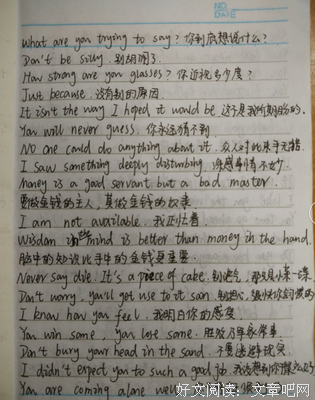 NO
DATE
What are you trying to say? 你到底想说什么?
Don't be silly. 别胡闹了.
How strong are you glasses? 你近视多少度?
Just because. 没有别的原因
It isn't the way I hoped it would be. 这不是我所期盼的.
You will never guess. 你永远猜不到
NO one could do anything about it. 众人对此束手无措
I saw something deeply disturbing. 深感事情不妙.
Money is a good servant but a bad master.
要做金钱的主人, 莫做金钱的奴隶
I am not available. 我正忙着
Wisdom in the mind is better than money in the hand.
脑中的知识比手中的金钱更重要
Never say die. It's a piece of cake. 别泄气, 那只是小菜一碟.
Don't worry, you'll get use to it soon. 别担心, 很快你就会习惯的
I know how you feel. 我明白你的感受.
You win some, you lose some. 胜败乃兵家常事
Don't bury your head in the sand. 不要逃避现实.
I didn't expect you to such a good job. 我没想到你
You are coming alone well
好文阅读: 文章吧网